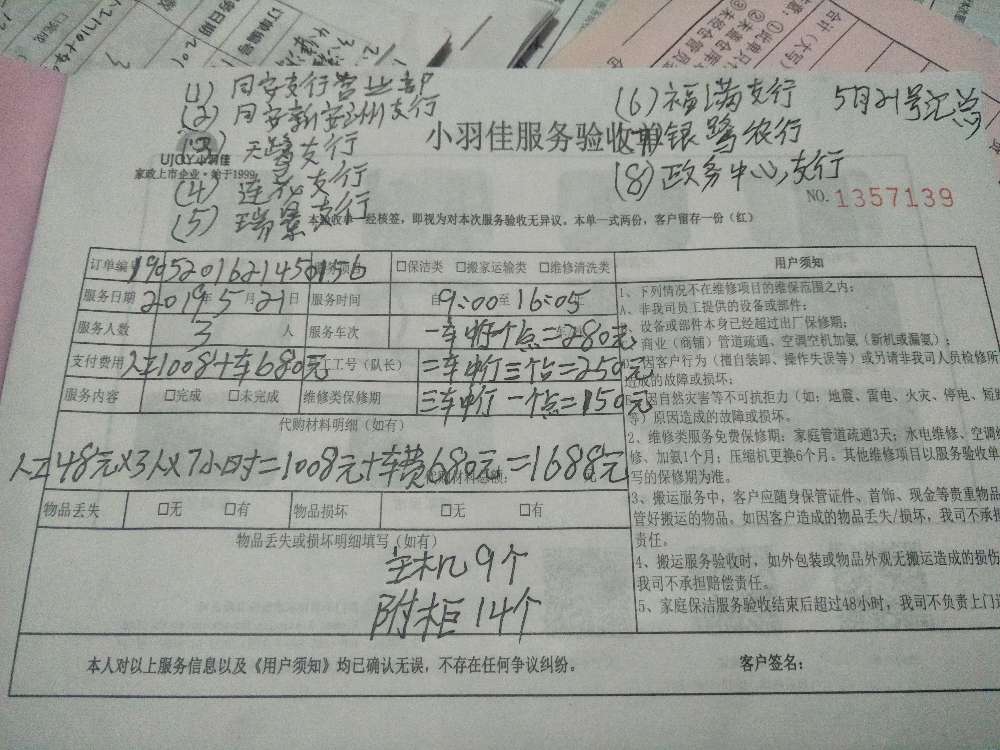 (1) 同安支行营业部
(2) 同安新安洲支行
(3) 天鹭支行
(4) 莲花支行
(5) 瑞景支行
(6) 福满支行
银鹭农行
(8) 政务中心支行
5月21号汇总
小羽佳服务验收单
UJOY小羽佳
家政上市企业·始于1999
NO. 1357139
本验收单一经核签，即视为对本次服务验收无异议。本单一式两份，客户留存一份（红）
订单编号 服务项目 □保洁类 □搬家运输类 □维修清洗类
服务日期 2019年5月21日 服务时间 自9:00至16:05
服务人数 3人 服务车次 一车中行一个点=280元
支付费用 人工1008+车680元 工号（队长） 二车中行三个点=250元
服务内容 □完成 □未完成 维修类保修期 三车中行一个点=150元
代购材料明细（如有）
人工48元×3人×7小时=1008元+车费680元=1688元
物品丢失 □无 □有 物品损坏 □无 □有
物品丢失或损坏明细填写（如有）
主机9个
附柜14个
用户须知
1、下列情况不在维修项目的维保范围之内：
A、非我司员工提供的设备或部件；
设备或部件本身已经超过出厂保修期；
商业（商铺）管道疏通、空调空机加氨（新机或漏氨）；
因客户行为（擅自装卸、操作失误等）或另请非我司人员检修所
造成的故障或损坏；
因自然灾害等不可抗拒力（如：地震、雷电、火灾、停电、短
等）原因造成的故障或损坏。
2、维修类服务免费保修期：家庭管道疏通3天；水电维修、空调维
修、加氨1个月；压缩机更换6个月。其他维修项目以服务验收单
写的保修期为准。
3、搬运服务中，客户应随身保管证件、首饰、现金等贵重物品
管好搬运的物品。如因客户造成的物品丢失/损坏，我司不承担
责任。
4、搬运服务验收时，如外包装或物品外观无搬运造成的损伤
我司不承担赔偿责任。
5、家庭保洁服务验收结束后超过48小时，我司不负责上门
本人对以上服务信息以及《用户须知》均已确认无误，不存在任何争议纠纷。
客户签名：